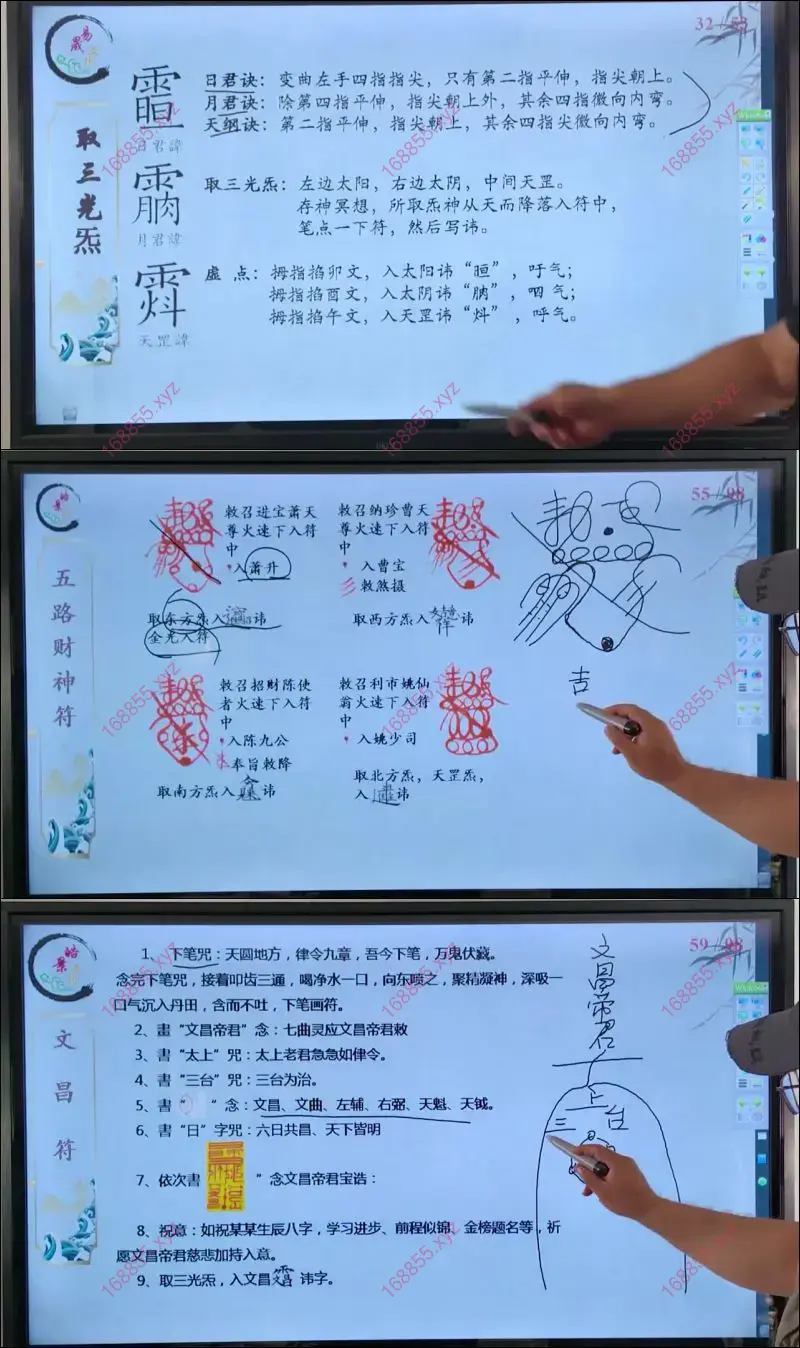 32
取三光炁
日君诀：变曲左手四指指尖，只有第二指平伸，指尖朝上。
月君诀：除第四指平伸，指尖朝上外，其余四指微向内弯。
天纲诀：第二指平伸，指尖朝上，其余四指尖微向内弯。
日君諱
取三光炁：左边太阳，右边太阴，中间天罡。
存神冥想，所取炁神从天而降落入符中，
笔点一下符，然后写讳。
月君諱
虚 点：拇指掐卯文，入太阳讳“晅”，吁气；
拇指掐酉文，入太阴讳“朒”，呬气；
拇指掐午文，入天罡讳“炓”，呼气。
天罡諱
168855.xyz
168855.xyz
168855.xyz
168855.xyz
168855.xyz
皓景
55 / 98
五路财神符
敕召进宝萧天
尊火速下入符
中
入萧升
取东方炁入 讳
金光入符
敕召纳珍曹天
尊火速下入符
中
入曹宝
敕煞摄
取西方炁入 讳
敕召招财陈使
者火速下入符
中
入陈九公
奉旨敕降
取南方炁入 讳
敕召利市姚仙
翁火速下入符
中
入姚少司
取北方炁，天罡炁，
入 讳
吉
168855.xyz
168855.xyz
168855.xyz
168855.xyz
168855.xyz
皓景
59 / 98
文昌符
1、下笔咒：天圆地方，律令九章，吾今下笔，万鬼伏藏。
念完下笔咒，接着叩齿三通，喝净水一口，向东喷之，聚精凝神，深吸一
口气沉入丹田，含而不吐，下笔画符。
2、畫“文昌帝君”念：七曲灵应文昌帝君敕
3、書“太上”咒：太上老君急急如律令。
4、書“三台”咒：三台为治。
5、書“ ”念：文昌、文曲、左辅、右弼、天魁、天钺。
6、書“日”字咒：六日共昌、天下皆明
7、依次書 ”念文昌帝君宝诰：
8、祝意：如祝某某生辰八字，学习进步、前程似锦、金榜题名等，祈
愿文昌帝君慈悲加持入意。
9、取三光炁，入文昌 讳字。
文昌帝君
上
三台
168855.xyz
168855.xyz
168855.xyz
168855.xyz
168855.xyz